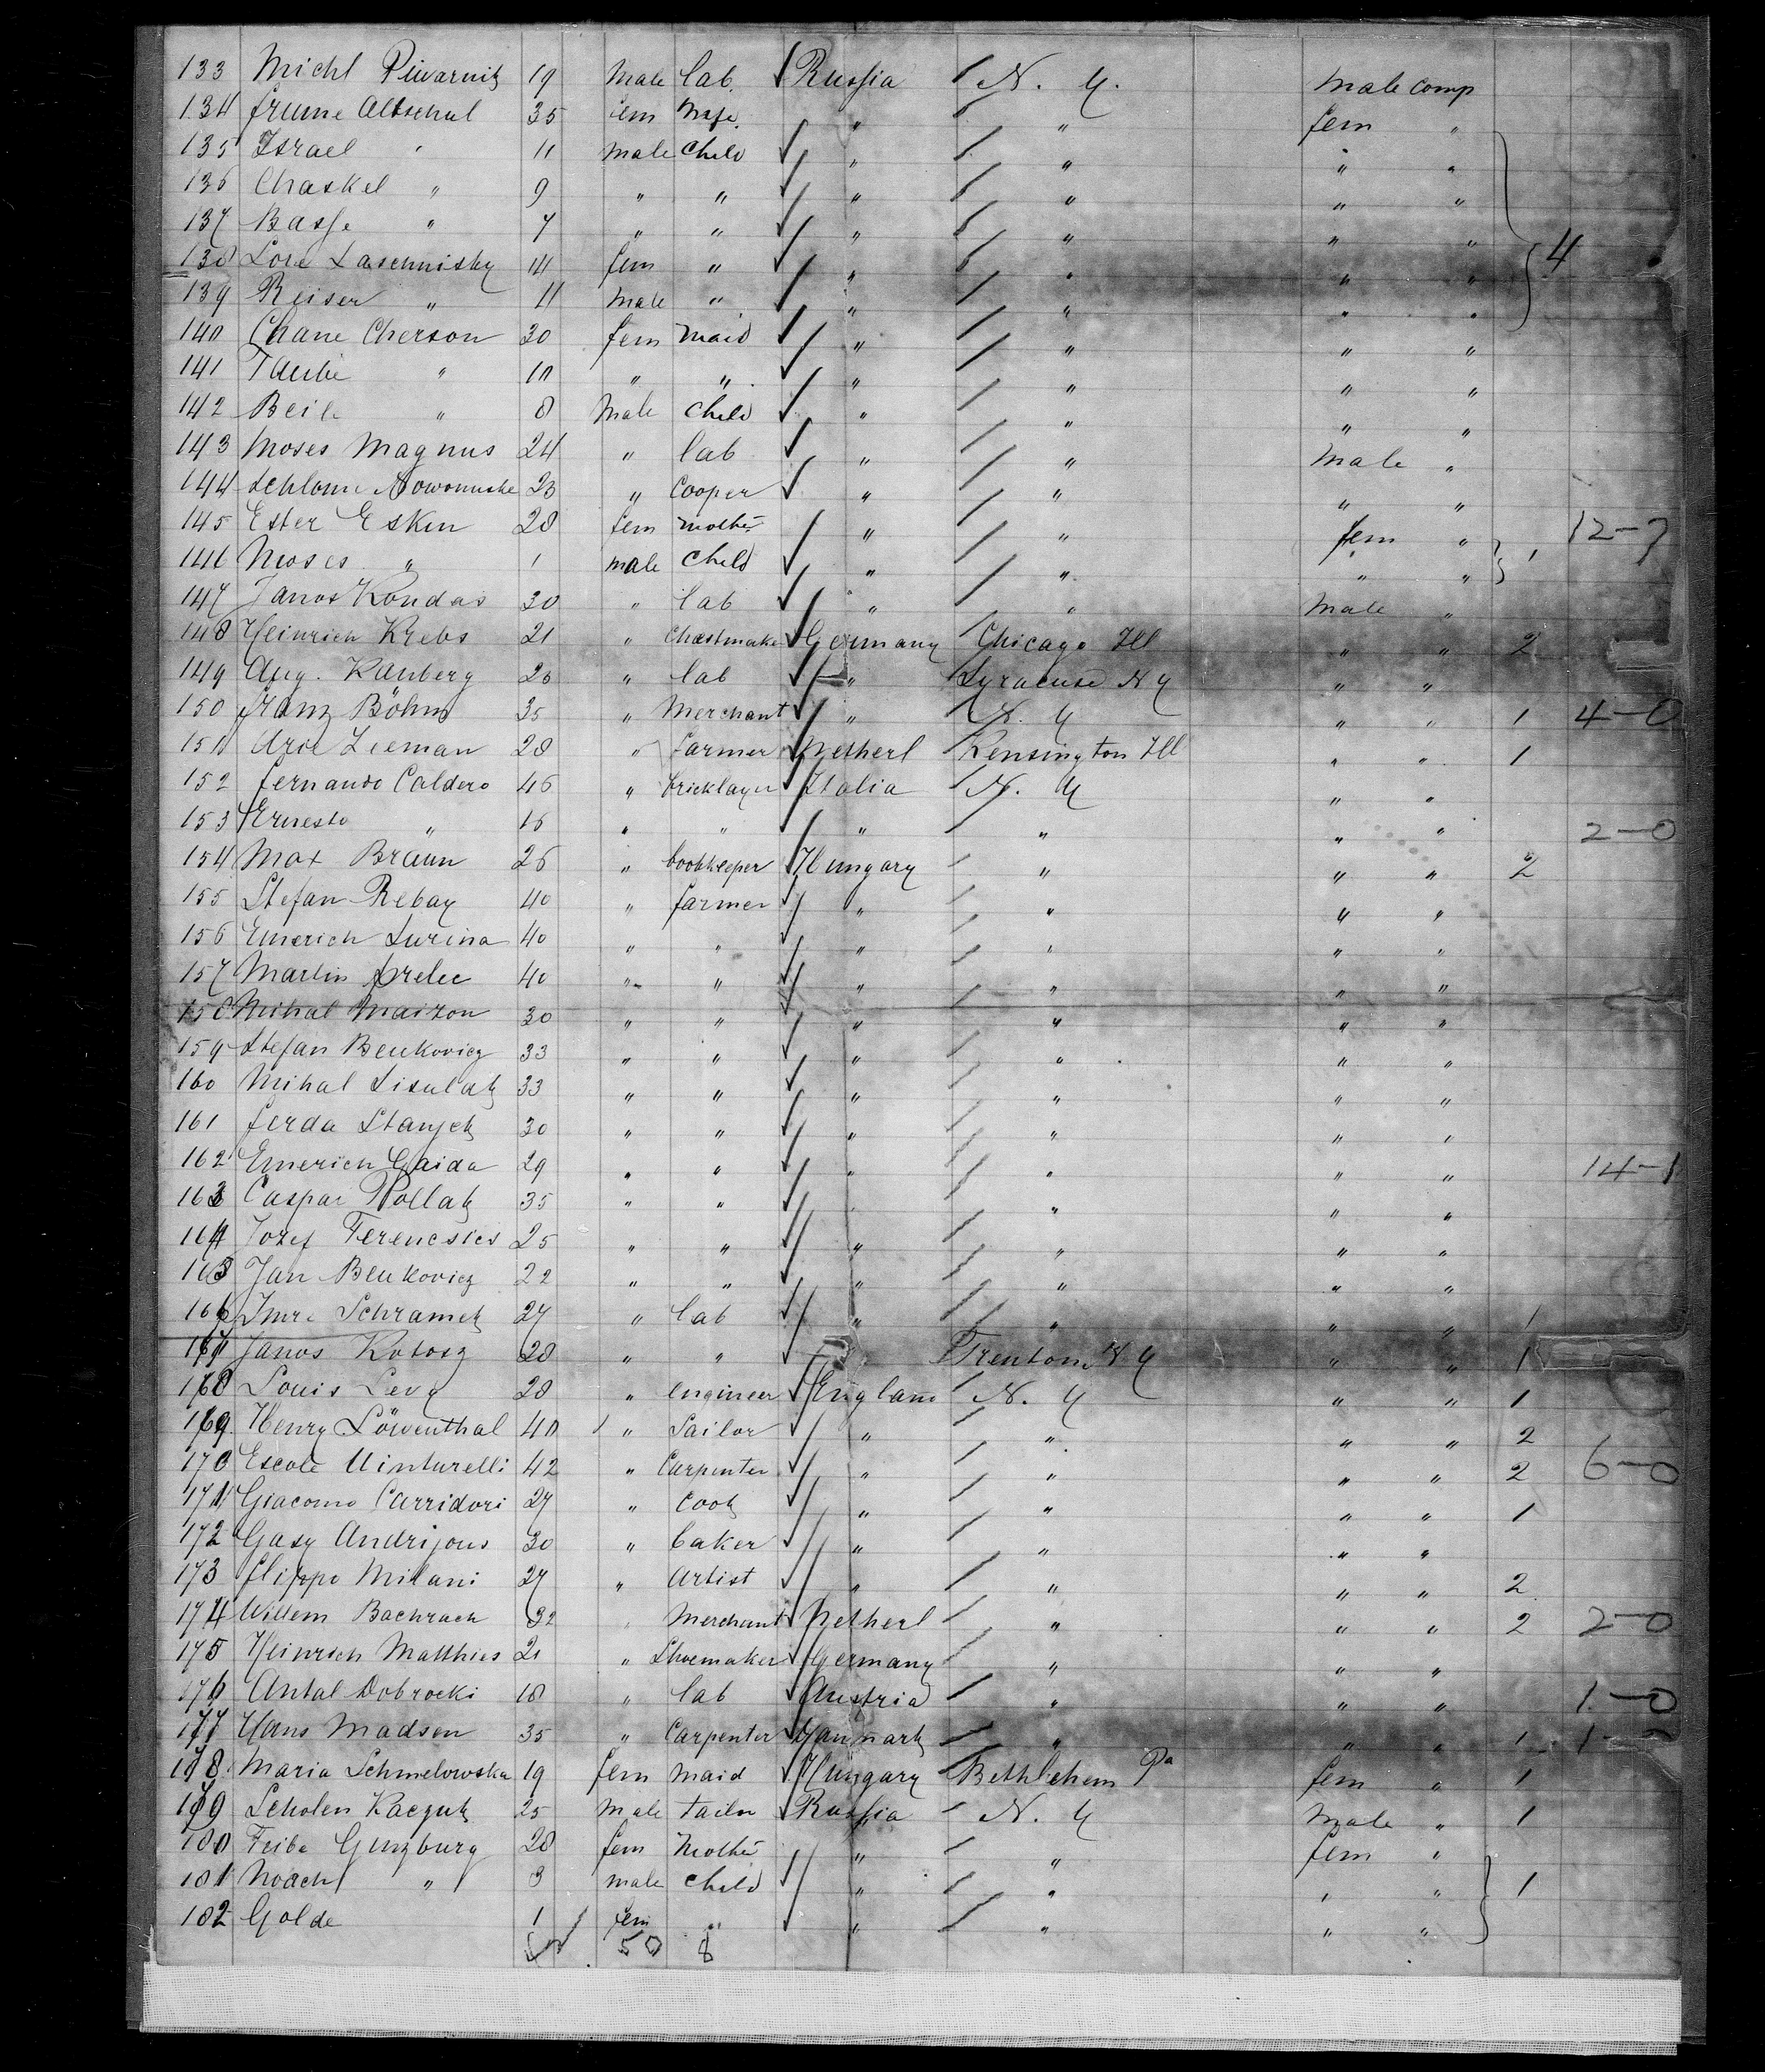 133 Michl Piwarnik 19 Male lab. Russia N. Y. male comp
134 Frume Altschul 35 fem " " fem "
135 Israel " 11 male child " " " "
136 Chaskel " 9 " " " " " "
137 Basse " 7 " " " " " " 4
138 Lore Laschnisky 14 fem " " " " "
139 Reiser " 11 male " " " " "
140 Chane Cherson 30 fem maid " " " "
141 Taube " 10 " " " " " "
142 Beile " 8 male child " " " "
143 Moses Magnus 24 " lab " " male "
144 Schlome 23 " cooper " " " "
145 Ester Eskin 28 fem mother " " fem " 12-7
146 Moses " 1 male child " " " " 1
147 Janos Kondas 30 " lab " " male "
148 Heinrich Krebs 21 " Germany Chicago Ill " " 2
149 Aug. Kanberg 20 " lab " Syracuse N Y " "
150 Franz Böhm 35 " Merchant " N. Y " " 1 4-0
151 Arie Leeman 28 " farmer Netherl Kensington Ill " " 1
152 Fernando Caldero 46 " bricklayer Italia N. Y " "
153 Ernesto " 16 " " " " " " 2-0
154 Max Braun 26 " bookkeeper Hungary " " " 2
155 Stefan Rebay 40 " farmer " " " "
156 Emerich Surina 40 " " " " " "
157 Martin 40 " " " " " "
158 Mihal Maizon 30 " " " " " "
159 Stefan Benkovicz 33 " " " " " "
160 Mihal Lisalak 33 " " " " " "
161 Ferda Stanjek 30 " " " " " "
162 Emerich Gaida 29 " " " " " " 14-1
163 Caspar Pollak 35 " " " " " "
164 Jozef Ferencsics 25 " " " " " "
165 Jan Benkovicz 22 " " " " " "
166 Imre Schramek 27 " lab " " " " 1
167 Janos Kotosz 28 " " " Trenton N Y " " 1
168 Louis Levy 28 " engineer England N. Y " " 1
169 Henry Löwenthal 40 " Sailor " " " " 2
170 Escole Uinturelli 42 " Carpenter " " " " 2 6-0
171 Giacomo Carridori 27 " Cook " " " " 1
172 Gasy Andrijous 30 " baker " " " "
173 Flippo Milani 27 " Artist " " " " 2
174 Willem Bachrach 32 " Merchant Netherl " " " 2 2-0
175 Heinrich Matthies 21 " Shoemaker Germany " " "
176 Antal Dobrocki 18 " lab Austria " " " 1-0
177 Hans Madsen 35 " Carpenter Danmark " " " 1
178 Maria Schmelowska 19 fem maid Hungary Bethlehem Pa fem " 1
179 Scholen Kaczuk 25 male tailor Russia N. Y male " 1
180 Feibe Ginzburg 28 fem Mother " " fem "
181 Noach " 3 male child " " " " 1
182 Golde 1 fem " " " " "
50 8